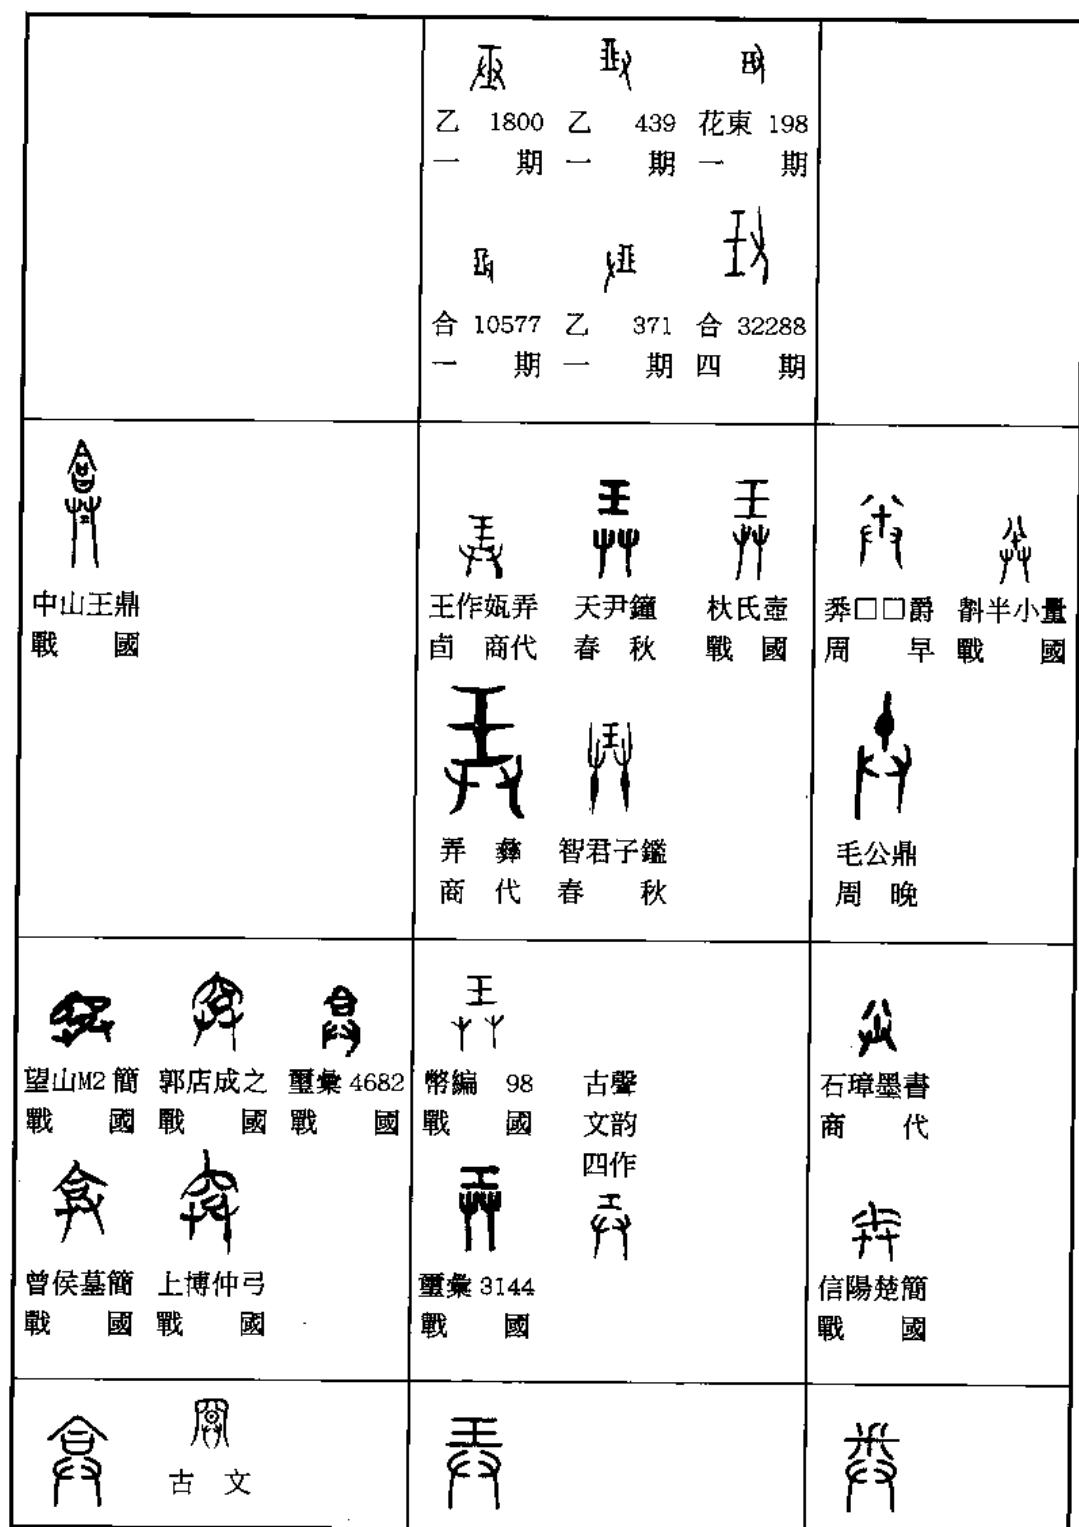 乙 1800 乙 439 花東 198
一期 一期 一期
合 10577 乙 371 合 32288
一期 一期 四期
中山王鼎
戰國
王作㚸弄
卣 商代
天尹鐘
春秋
杕氏壺
戰國
弄彝
商代
智君子鑑
春秋
□□爵
周早
半小量
戰國
毛公鼎
周晚
望山M2簡
戰國
郭店成之
戰國
璽彙 4682
戰國
曾侯墓簡
戰國
上博仲弓
戰國
幣編 98
戰國
古聲
文韵
四作
璽彙 3144
戰國
石璋墨書
商代
信陽楚簡
戰國
古文